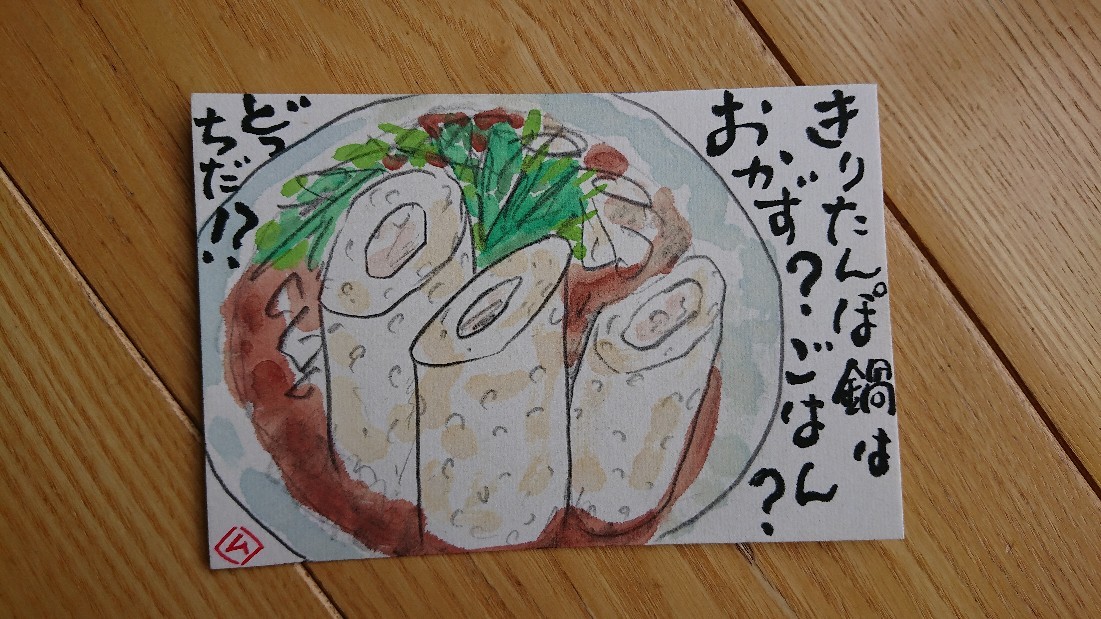 きりたんぽ鍋は
おかず？ごはん？
どっ
ちだ!?
ム